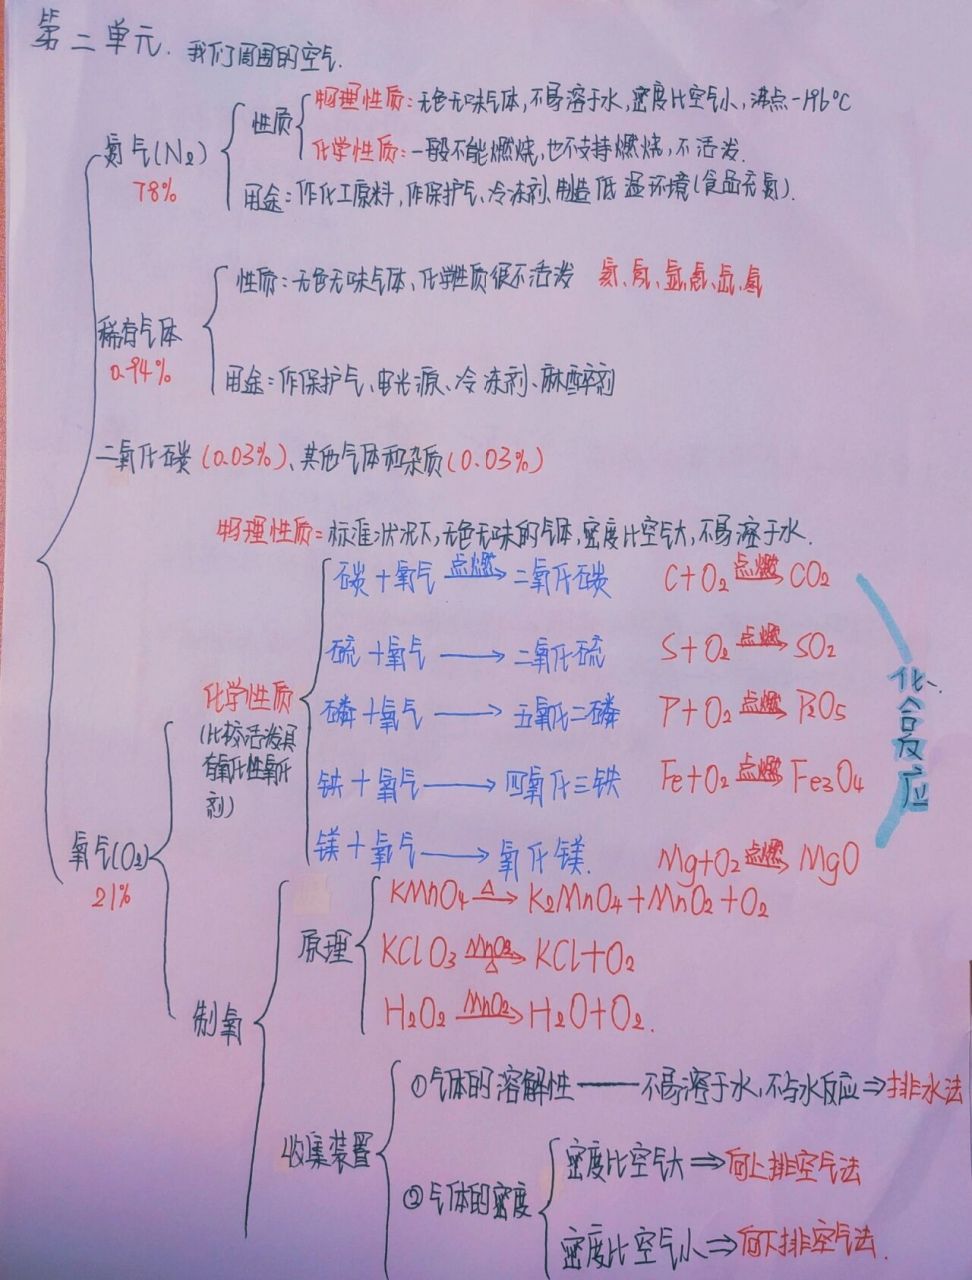 第二单元. 我们周围的空气.
氮气(N₂)
78%
性质
物理性质:无色无味气体,不易溶于水,密度比空气小,沸点-196°C
化学性质:一般不能燃烧,也不支持燃烧,不活泼.
用途:作化工原料,作保护气、冷冻剂、制造低温环境(食品充氮).
稀有气体
0.94%
性质:无色无味气体、化学性质很不活泼 氦、氖、氩、氪、氙、氡
用途:作保护气、电光源、冷冻剂、麻醉剂
二氧化碳(0.03%)、其他气体和杂质(0.03%)
氧气(O₂)
21%
物理性质:标准状况下,无色无味的气体,密度比空气大,不易溶于水.
化学性质
(比较活泼具
有氧化性氧化
剂)
碳+氧气 点燃→ 二氧化碳 C+O₂ 点燃→ CO₂
硫+氧气 → 二氧化硫 S+O₂ 点燃→ SO₂
磷+氧气 → 五氧化二磷 P+O₂ 点燃→ P₂O₅
铁+氧气 → 四氧化三铁 Fe+O₂ 点燃→ Fe₃O₄
镁+氧气 → 氧化镁. Mg+O₂ 点燃→ MgO
化合反应
制氧
原理
KMnO₄ △→ K₂MnO₄+MnO₂+O₂
KClO₃ MnO₂△→ KCl+O₂
H₂O₂ MnO₂→ H₂O+O₂.
收集装置
①气体的溶解性——不易溶于水,不与水反应⇒排水法
②气体的密度
密度比空气大⇒向上排空气法
密度比空气小⇒向下排空气法.